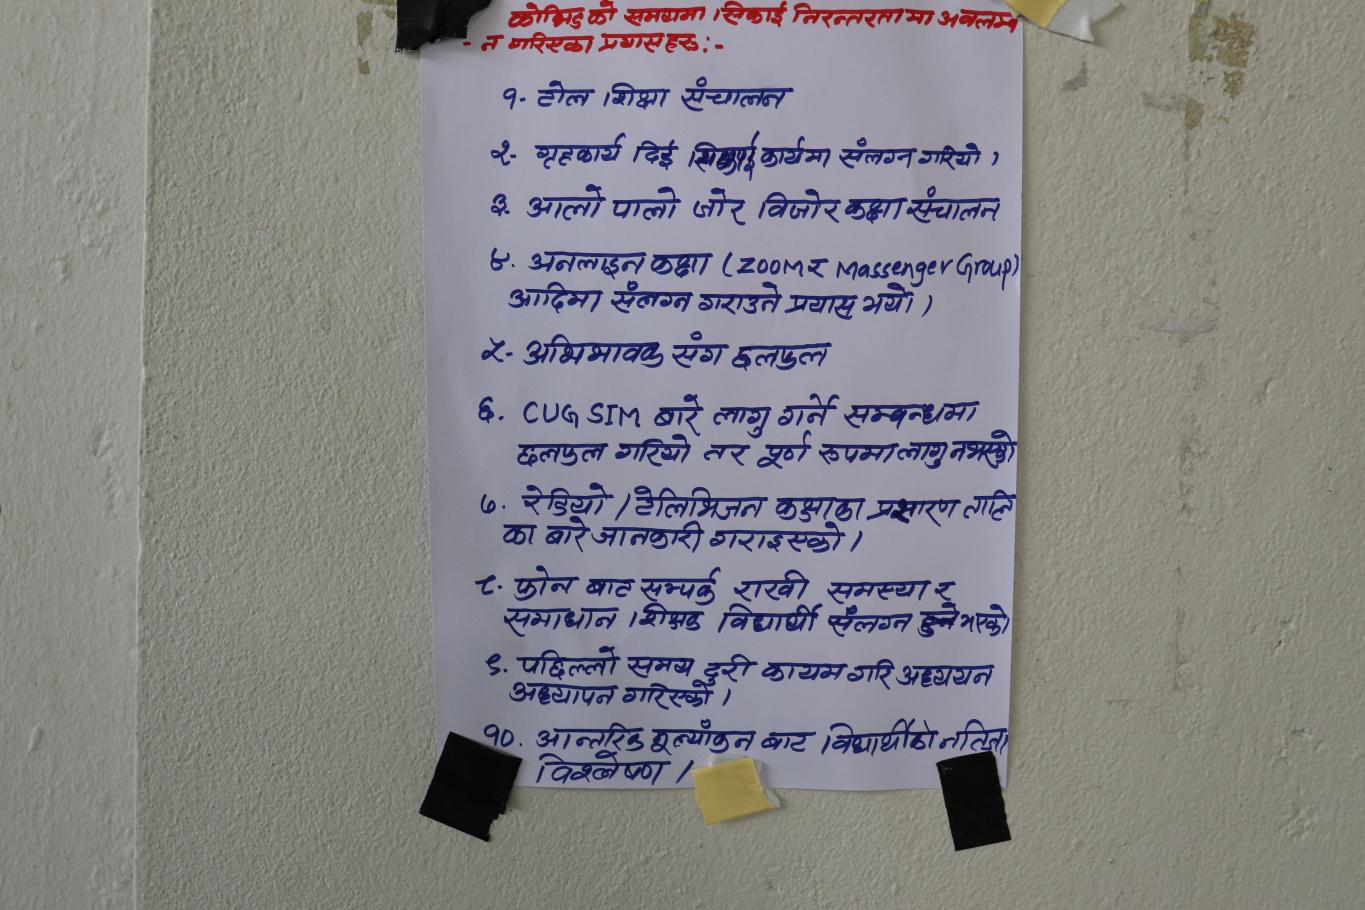 कोभिड को समयमा सिकाई निरन्तरतामा अवलम्ब
- न गरिएका प्रयासहरू:-
१- टोल शिक्षा संचालन
२- गृहकार्य दिई सिकाई कार्यमा संलग्न गरियो ।
३. आलो पालो जोर विजोर कक्षा संचालन
४. अनलाइन कक्षा (ZOOM र Massenger Group)
आदिमा संलग्न गराउने प्रयास भयो ।
५- अभिभावक संग छलफल
६. CUG SIM बारे लागु गर्ने सम्बन्धमा
छलफल गरियो तर पूर्ण रूपमा लागु नभएको
७. रेडियो / टेलिभिजन कक्षाका प्रसारण तालि
का बारे जानकारी गराइएको ।
८. फोन बाट सम्पर्क राखी समस्या र
समाधान शिक्षक विद्यार्थी संलग्न हुने भएको
९. पछिल्लो समय दुरी कायम गरि अध्ययन
अध्यापन गरिएको ।
१०. आन्तरिक मूल्याँकन बाट विद्यार्थीको नतिजा
विश्लेषण ।